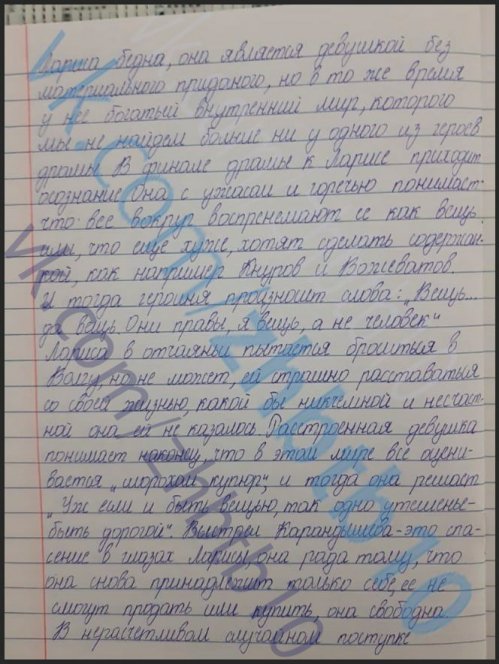 Лариса бедна, она является девушкой без
материального приданого, но в то же время
у нее богатый внутренний мир, которого
мы не найдем больше ни у одного из героев
драмы. В финале драмы к Ларисе приходит
осознание. Она с ужасом и горечью понимает
что все вокруг воспренемают ее как вещь
или, что еще хуже, хотят сделать содержан-
кой, как например Кнуров и Вожеватов.
И тогда героиня произносит слова: "Вещь...
да вещь. Они правы, я вещь, а не человек"
Лариса в отчаяньи пытается броситься в
Волгу, но не может, ей страшно расставаться
со своей жизнью, какой бы никчемной и несчаст-
ной она ей не казалось. Расстроенная девушка
понимает наконец, что в этом мире все оцени-
вается "шорохом купюр", и тогда она решает
"Уж если и быть вещью, так одно утешенье-
быть дорогой". Выстрел Карандышева - это спа-
сение в глазах Ларисы, она рада тому, что
она снова принадлежит только себе, ее не
смогут продать или купить, она свободна
В нерасчетливом случайном поступке
vk.com/zhbrblo
vk.com/zhbrblo